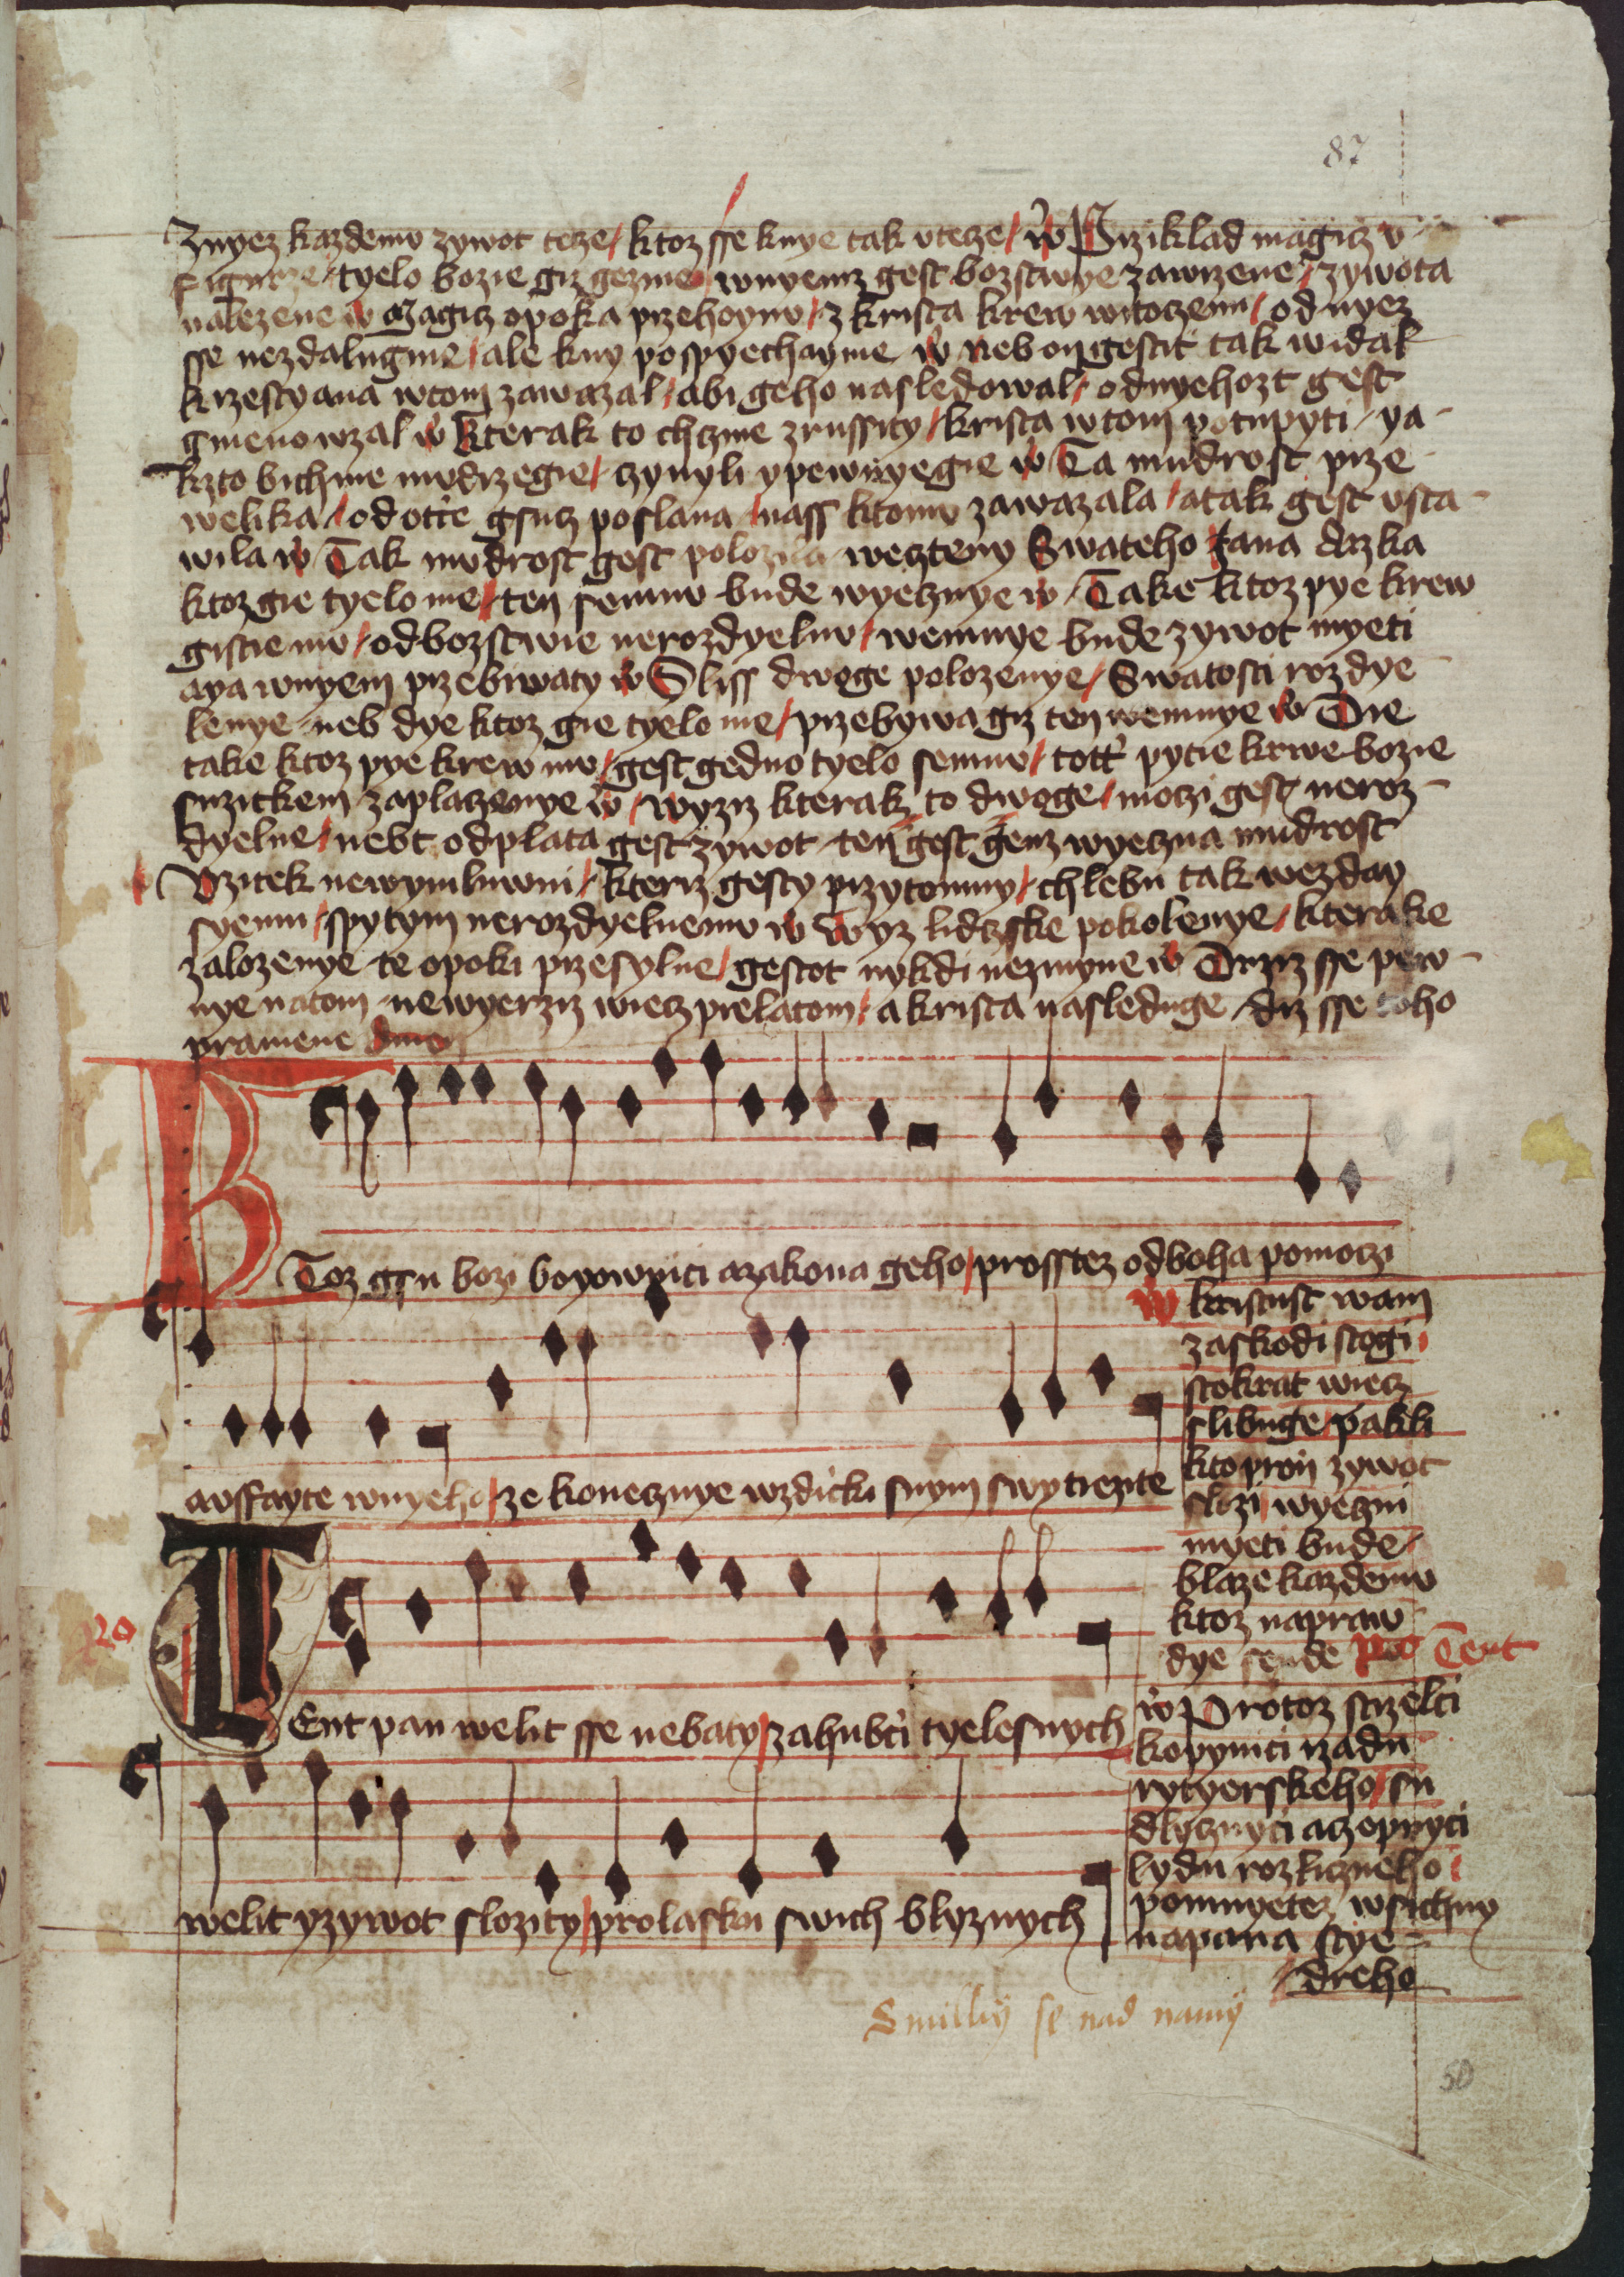 87
Znyez kazdemu zywot tcze / ktoz sse knye tak vtecze / w Prziklad magicz v
figurze / tyelo bozie giz gezme / wnyemz gest bozstwye zawrzene / zywota
nalezene w Magicz opoka przehoynu / z krista krew witoczenu / od nyez
sse nezdalugme / ale kny pospyechayme w neb on gestit tak widal
krzestyana wtom zawazal / abi geho nasledowal / odnyehozt gest
gmeno wzal w kterak to chczme zrussity / krista wtom potupyti / ya
kzto bichme mudrzegie / czynyli ypewnyegie w Ta mudrost prze
welika / od otcze gsucz poslana / nass ktomu zawazala / atak gest vsta
wila w Tak mudrost gest polozila weczteny Swateho Jana drzka
ktoz gie tyelo me / ten semnu bude wyecznye w Take ktoz pye krew
gistie mu / odbozstwie nerozdyelnu / wemnye bude zywot myeti
aya wnyem przebiwaty w Sliss dwoge polozenye / Swatosti rozdye
lenye neb dye ktoz gie tyelo me / przebywa giz ten wemnye w Die
take ktoz pye krew mu / gest gedno tyelo semnu / tott pytie krwe bozie
suzitkem zaplaczenye w / wyziz kterak to dwoge / moczi gest neroz
dyelne / nebt odplata gest zywot ten gest genz wyeczna mudrost
Vzitek newymluwni / kteriz gesty przytomny / chlebu tak wezday
syemu / spytym nerozdyelnemu w wyz lidczske pokolenye / kterake
zalozenye te opoki przesylne / gestot nykdi nezmyne w Drziz sse pew
nye natom newyerziz wiecz prelatom / a krista nasleduge drz sse toho
pramene
Ktoz gsu bozi boyownici azakona geho / prosstez odboha pomoczi
avffayte wnyeho / ze konecznye wzdicki snym swytiezite
w kristust wam
zaskodi stogi
stokrat wiecz
slibuge / pakli
kto pron zywot
slozi wyeczni
myeti bude
blaze kazdemu
ktoz napraw
dye sende Rx Tent
Tent pan welit sse nebaty / zahubci tyelesnych
welit yzywot slozity / prolasku swich blyznych
w Protoz strzelci
kopynici rzadu
rytyerskeho / su
dlycznyci aczepnyci
lydu rozliczneho
pomnyetez wsichny
napana stye
dreho
Smilluy se nad namy
50